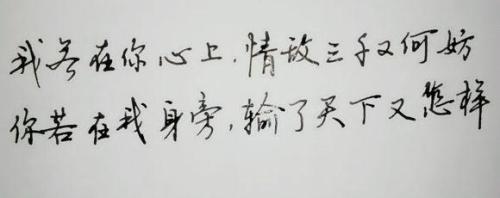 我若在你心上,情敌三千又何妨
你若在我身旁,输了天下又怎样